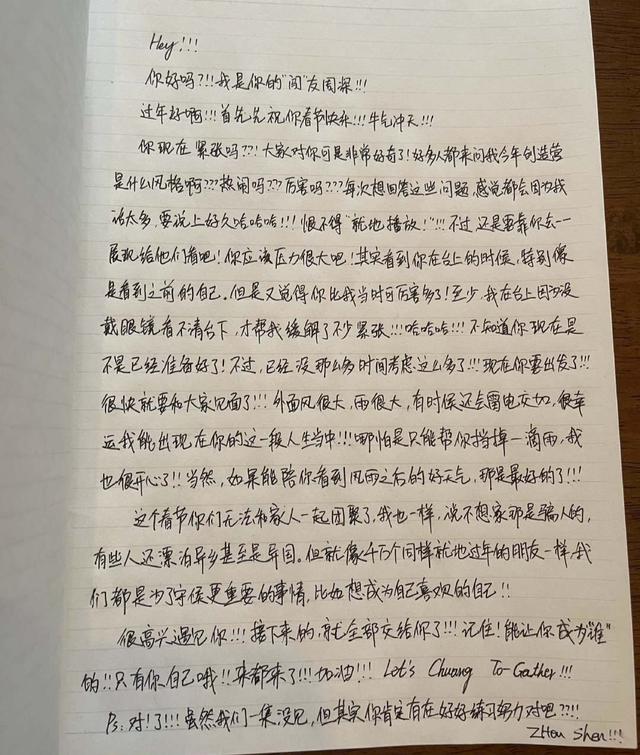 Hey!!!
你好吗?!!我是你的"闺"友周深!!!
过年好啊!!!首先先祝你春节快乐!!!牛气冲天!!!
你现在紧张吗??!大家对你可是非常好奇了!好多人都来问我今年创造营
是什么风格啊???热闹吗???厉害吗???每次想回答这些问题,感觉都会因为我
话太多,要说上好久哈哈哈!!!恨不得"就地播放!"!!不过还是要靠你去一一
展现给他们看吧!你应该压力很大吧!其实看到你在台上的时候,特别像
是看到之前的自己。但是又觉得你比我当时可厉害多了!至少,我在台上因为没
戴眼镜看不清台下,才帮我缓解了不少紧张!!!哈哈哈!!!不知道你现在是
不是已经准备好了!不过,已经没那么多时间考虑这么多了!!!现在你要出发了!!!
很快就要和大家见面了!!!外面风很大,雨很大,有时候还会雷电交加,很幸
运我能出现在你的这一段人生当中!!!哪怕是只能帮你挡掉一滴雨,我
也很开心了!!当然,如果能陪你看到风雨之后的好天气,那是最好的了!!!
这个春节你们无法和家人一起团聚了,我也一样,说不想家那是骗人的,
有些人还漂泊异乡甚至是异国。但就像千万个同样就地过年的朋友一样,我
们都是为了守候更重要的事情,比如想成为自己喜欢的自己!!
很高兴遇见你!!!接下来的,就全部交给你了!!!记住!能让你成为"谁"
的!!只有你自己哦!!来都来了!!!加油!!!Let's Chuang To-Gather!!!
Ps:对!了!!!虽然我们一集没见,但其实你肯定有在好好练习努力对吧??!!
ZHOU SHEN!!!